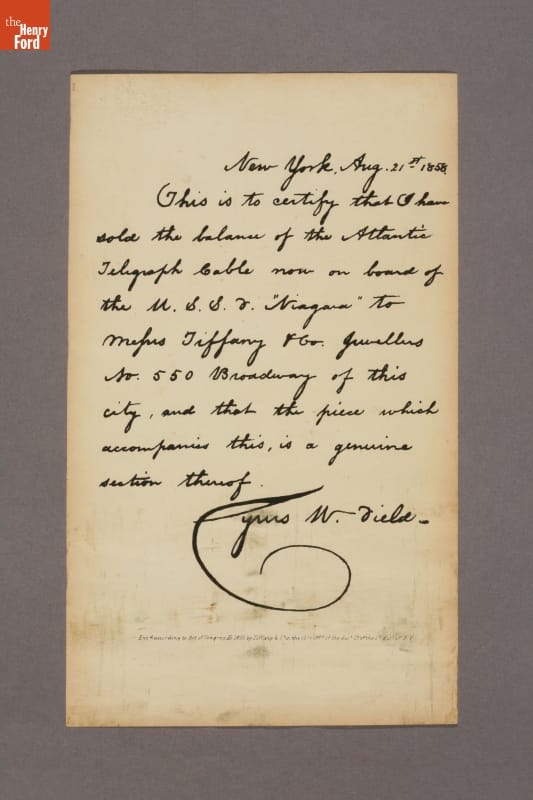 the
Henry
Ford
New York, Aug. 21st 1858
This is to certify that I have
sold the balance of the Atlantic
Telegraph Cable now on board of
the U. S. S. F. "Niagara" to
Messrs Tiffany & Co. Jewellers
No. 550 Broadway of this
city, and that the piece which
accompanies this, is a genuine
section thereof.
Cyrus W. Field
according to Act of Congress by Tiffany & Co. of the